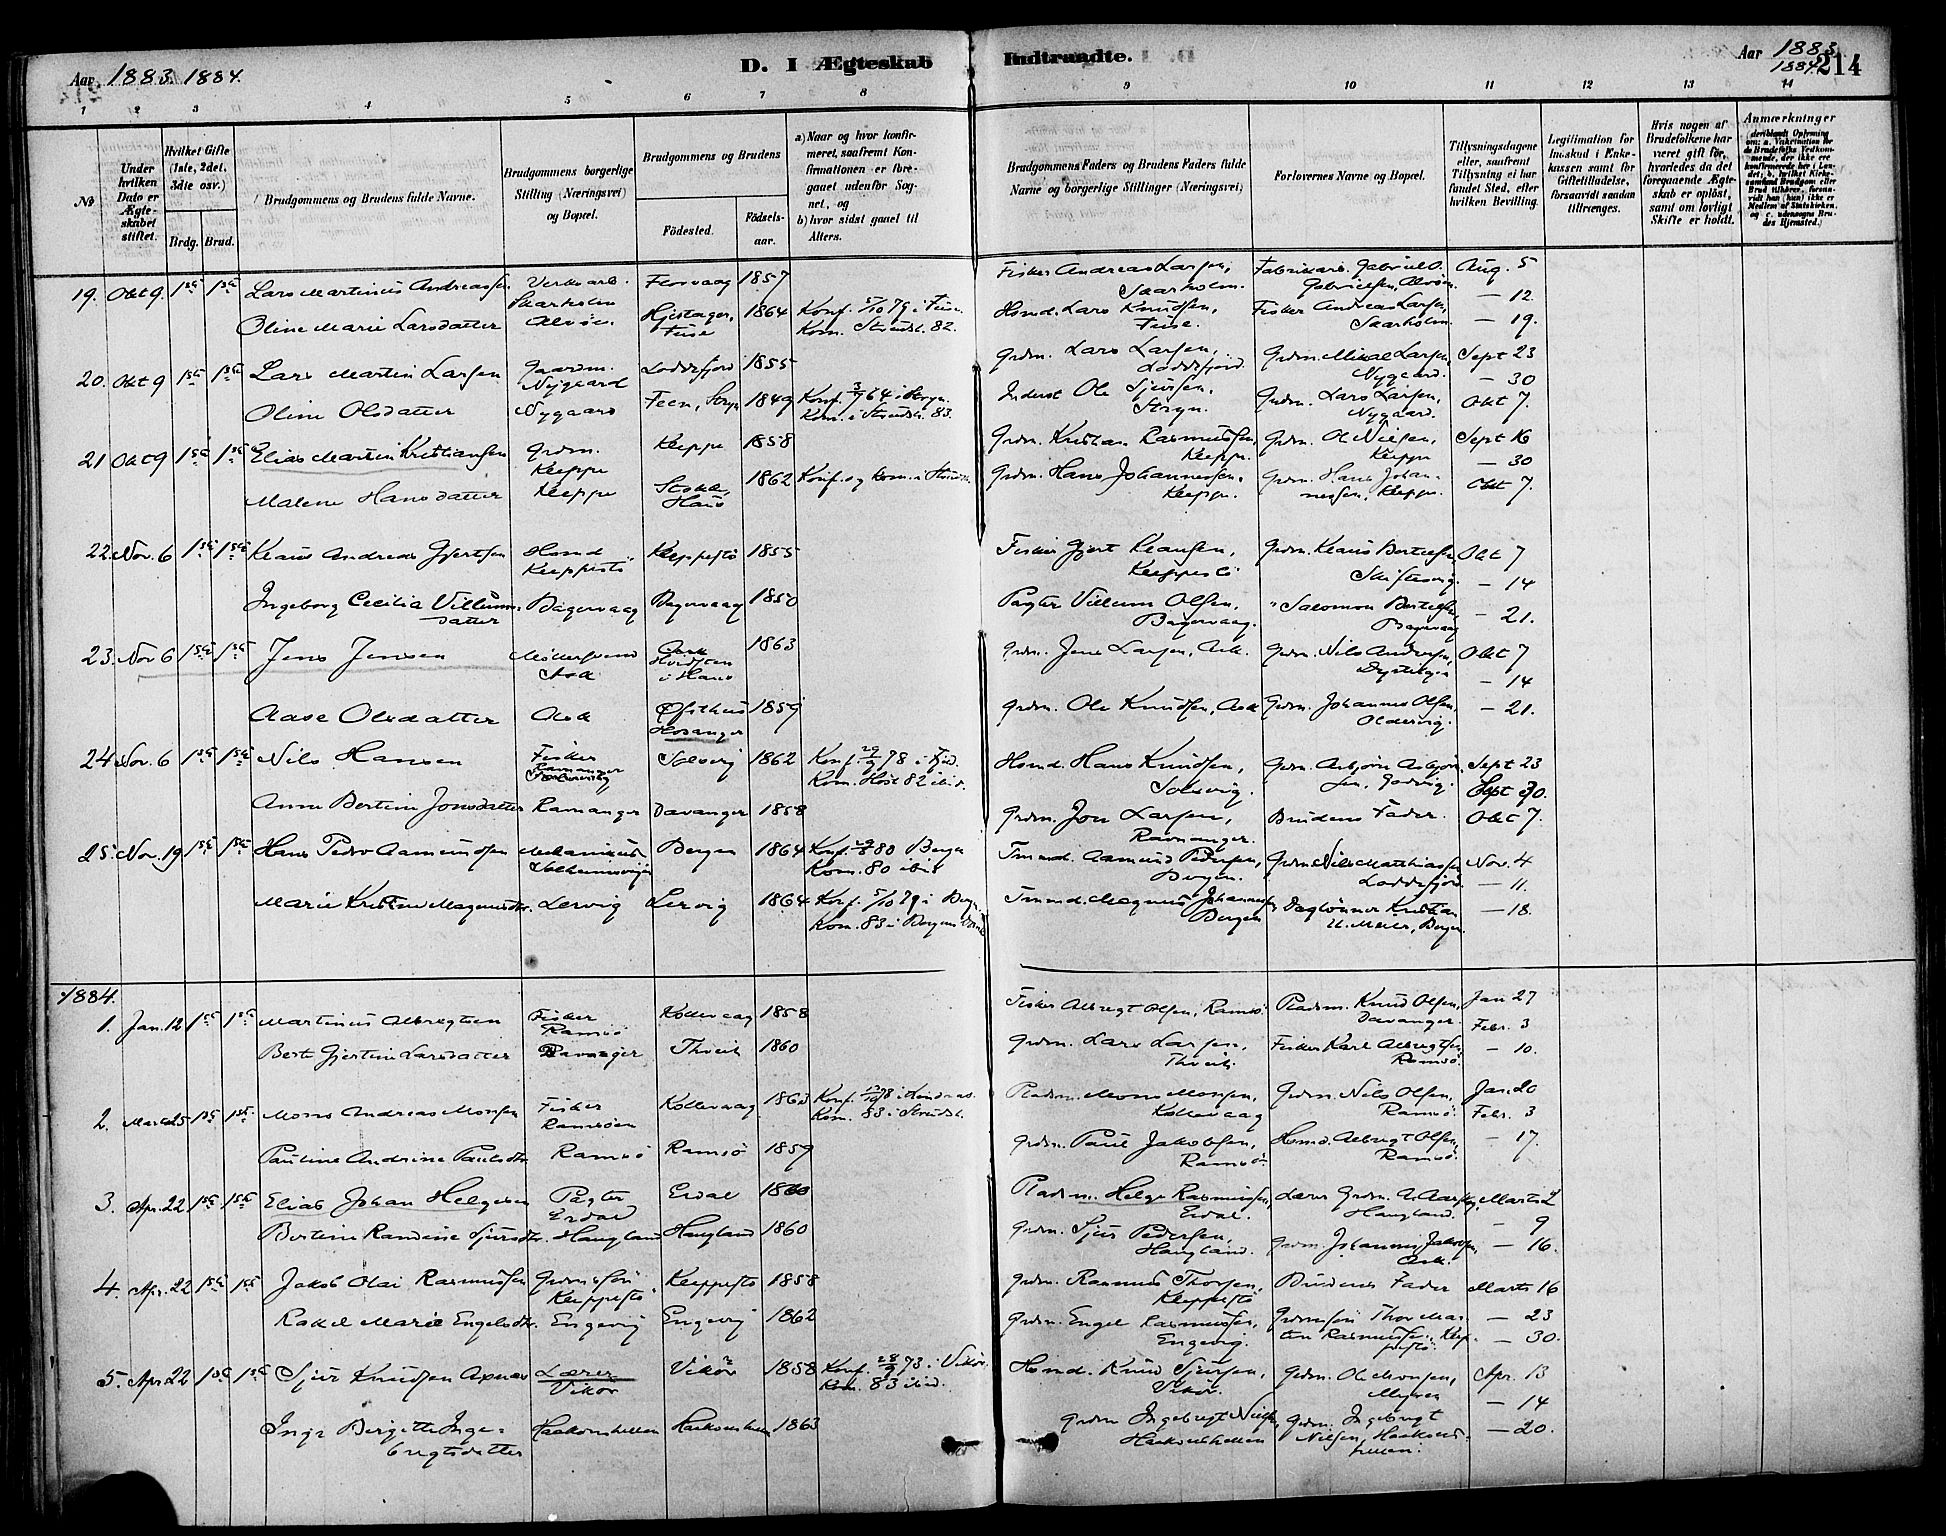 Aar 1883. 1884.
D. I Ægteskab Indtraadte.
Aar 1883 1884. 214
1 2 3 4 5 6 7 8 9 10 11 12 13 14
No
Under hvilken Dato er Ægteskabet stiftet.
Hvilket Gifte (1ste, 2det, 3die osv.)
Brdg. Brud.
Brudgommens og Brudens fulde Navne.
Brudgommens og Brudens borgerlige Stilling (Næringsvei) og Bopæl.
Brudgommens og Brudens
Fødested.
Fødselsaar.
a) Naar og hvor konfirmeret, saafremt Konfirmationen er foregaaet udenfor Sognet, og
b) hvor sidst gaaet til Alters.
Brudgommens Faders og Brudens Faders fulde Navne og borgerlige Stillinger (Næringsvei)
Forlovernes Navne og Bopæl.
Tillysningsdagene eller, saafremt Tillysning ei har fundet Sted, efter hvilken Bevilling.
Legitimation for Indskud i Enkekassen samt for Giftetilladelse, forsaavidt saadan tiltrænges.
Hvis nogen af Brudefolkene har været gift før, hvorledes da det foregaaende Ægteskab er opløst, samt om lovligt Skifte er holdt.
Anmærkninger
19. Okt 9. 1ste 1ste Lars Martinius Andreassen Skarholm Florvaag 1857 Fisker Andreas Larsen, Skarholm. Gabriel O. Gabrielsen, Alvøen. Aug. 5
Oline Marie Larsdatter Alvøen Fuse 1864 Konf. 5/10 79 i Fuse. Kom. Strudsh. 82. Hsmd. Lars Knudsen, Fuse. Fisker Andreas Larsen, Skarholm. — 12. — 19.
20. Okt 9 1ste 1ste Lars Martin Larsen Gaardm. Nygaard Loddefjord 1855 Grdm. Lars Larsen, Loddefjord. Grdm. Mikal Larsen, Nygaard. Sept 23 — 30
Oline Olsdatter Nygaard Feen, Stryn 1849 Konf. 64 i Stryn. Kom. i Strudsh. 83. Inderst Ole Sjursen, Stryn. Grdm. Lars Larsen, Nygaard. Okt 7.
21 Okt 9 1ste 1ste Elias Martin Kristiansen Grdm. Kleppe Kleppe 1858 Grdm. Kristian Rasmussen, Kleppe. Grdm. Ole Nilsen, Kleppe Sept 16 — 30
Malene Hansdatter Kleppe Haus 1862 Konf. og Kom. i Grdm. Hans Johannessen, Kleppe. Grdm. Hans Johannessen, Kleppe. Okt 7.
22. Nov. 6 1ste 1ste Klaus Andreas Gjertsen Hsmd Kleppestø Kleppestø 1855 Fisker Gjert Klausen, Kleppestø Grdm. Klaus Bertelsen, Skiftesvig. Okt 7 — 14
Ingeborg Cecilia Villumsdatter Bagervaag Bagervaag 1850 Pagter Villum Olsen, Bagervaag. " Salomon Bertelsen Bagervaag — 21.
23. Nov 6 1ste 1ste Jens Jensen Møllersvend Ask i Haus 1863 Grdm. Jens Larsen, Ask. Grdm. Nils Andersen, Okt 7 — 14
Aase Olsdatter Ask Øfsthus Hosanger 1859 Grdm. Ole Knudsen, Ask Grdm. Johannes Olsen, Oldervig. — 21.
24 Nov. 6 1ste 1ste Nils Hansen Fisker Solsvig 1862 Konf. 29/9 78 i Fjeld. Kom. Høst 82 ibid. Hsmd. Hans Knudsen, Solsvig. Grdm. Asbjørn Asbjørnsen, Sept 23 Sept 30.
Anne Bertine Jonsdatter Ramanger Davanger 1858 Grdm. Jon Larsen, Ravnanger. Brudens Fader. Okt 7.
25. Nov. 19 1ste 1ste Hans Pedro Aamundsen Mekanikus Solheimsvigen Bergen 1864 Konf. 80 Bergen Kom. 80 ibid. Tmmd. Aamund Pedersen, Bergen. Grdm. Nils Matthiassen, Loddefjord. Nov. 4 — 11.
Marie Kristine Magnusdtr. Lervig Lervig 1864 Konf. 5/10 79 i Bergen. Kom. 83 i Bergens Tmmd. Magnus Johannessen, Bergen Daglønner Kristian H. Meier, Bergen. — 18.
1884.
1. Jan. 12 1ste 1ste Martinus Albregtsen Fisker Ramsø Kollevaag 1858 Fisker Albregt Olsen, Ramsø. Pladsm. Knud Olsen, Davanger. Jan 27 Febr. 3
Berte Gjertine Larsdatter Ravnanger Thveit 1860 Grdm. Lars Larsen, Thveit. Fisker Karl Albregtsen, Ramsø. — 10.
2. Marts 25 1ste 1ste Mons Andreas Monsen Fisker Ramsøen Kollevaag 1863 Konf. 78 i Kom. 83 i Strudsh. Pladsm. Mons Monsen, Kollevaag Grdm. Nils Olsen, Ramsø. Jan. 20 Febr. 3
Pauline Andrine Paulsdtr. Ramsø Ramsø 1859 Grdm. Paul Jakobsen, Ramsø. Hsmd. Albregt Olsen, Ramsø. — 17.
3. Apr. 22 1ste 1ste Elias Johan Helgesen Pagter Erdal Erdal 1860 Pladsm. Helge Rasmussen, Erdal. Haugland. Marts 2 — 9
Bertine Randine Sjursdtr. Haugland Haugland 1860 Grdm. Sjur Pedersen, Haugland. Grdm. Johannes Jakobsen, Ask. — 16.
4. Apr. 22 1ste 1ste Jakob Olai Rasmussen Grdmssøn Kleppestø Kleppestø 1858 Grdm. Rasmus Thorsen, Kleppestø Brudens Fader Marts 16
Rakel Marie Engelsdtr. Engevig Engevig 1862 Grdm. Engel Rasmussen, Engevig. Grdmssøn Thor Martin Rasmussen, Kleppestø. — 23 — 30.
5. Apr 22 1ste 1ste Sjur Knudsen Axnes Lærer Vikør Vikør 1858 Konf. 28/9 73 i Vikør. Kom. 83 ibid. Hsmd. Knud Sjursen, Vikør. Grdm. Ole Monsen, Myren Apr. 13 — 14
Inga Bergitte Ingebregtsdatter Haakonshellen Haakonshellen 1863 Grdm Ingebregt Nilsen, Haakonshellen Grdm. Ingebregt Nilsen, Haakonshellen. — 20.